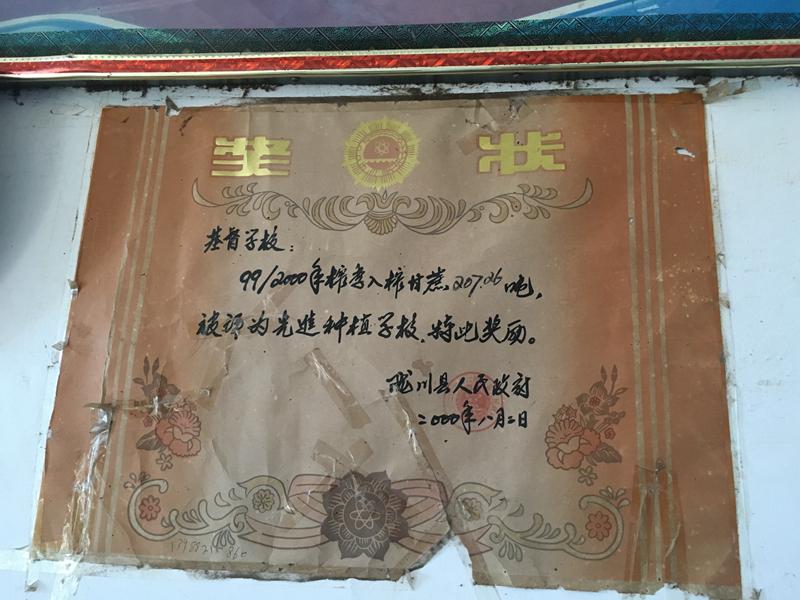 奖 状
基督学校:
99/2000年榨季入榨甘蔗207.26吨,
被评为先进种植学校,特此奖励。
陇川县人民政府
二000年八月二日